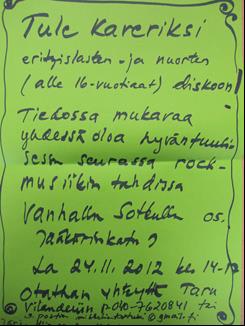 Tule kaveriksi
erityislasten- ja nuorten
(alle 16-vuotiaat) diskoon!
Tiedossa mukavaa
yhdessä oloa hyväntuuli-
sessa seurassa rock-
musiikin tahdissa
Vanhalla Sotkulla os.
La 24.11.2012 klo
Otathan yhteyttä Taru
p. 040-7620841 tai
@gmail.fi